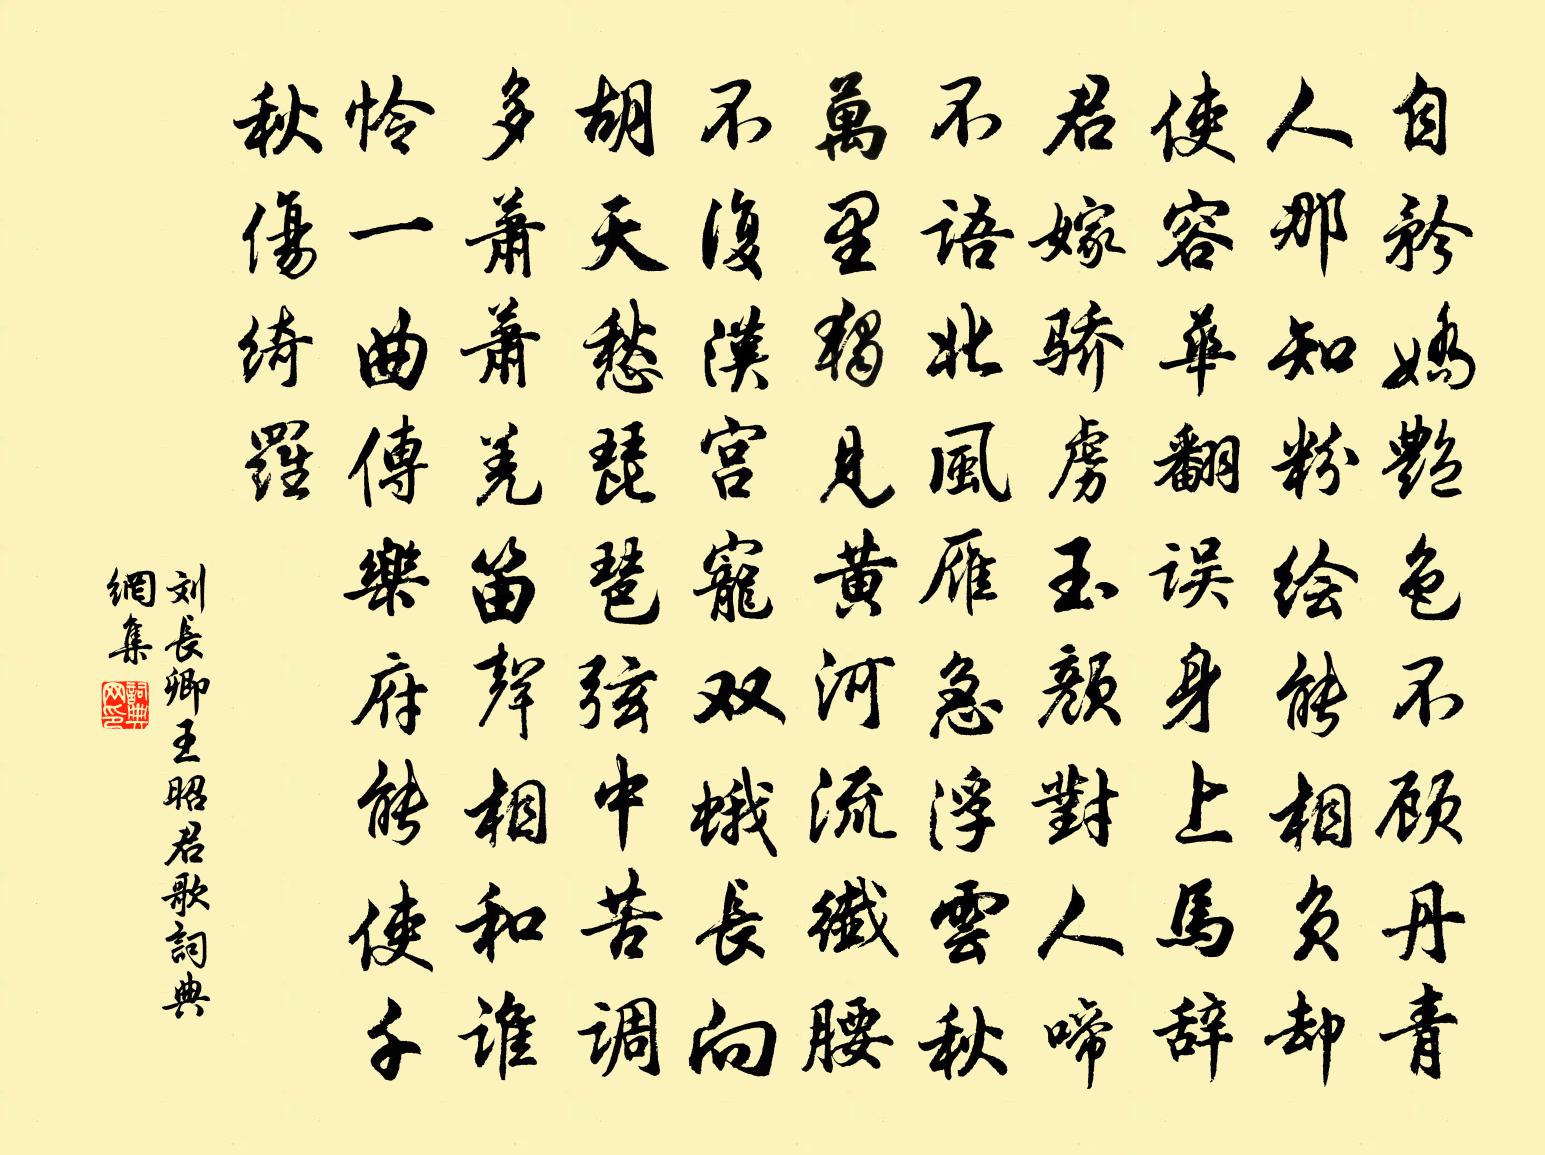 自矜嬌艷色不顾丹青
人那知粉绘能相负却
使容華翻误身上馬辞
君嫁骄虏玉顏對人啼
不語北風雁急浮雲秋
萬里獨見黄河流纖腰
不復漢宫寵双蛾長向
胡天愁琵琶弦中苦调
多蕭蕭羌笛聲相和谁
怜一曲傳樂府能使千
秋傷綺羅
刘長卿王昭君歌詞典
網集
詞典
网印